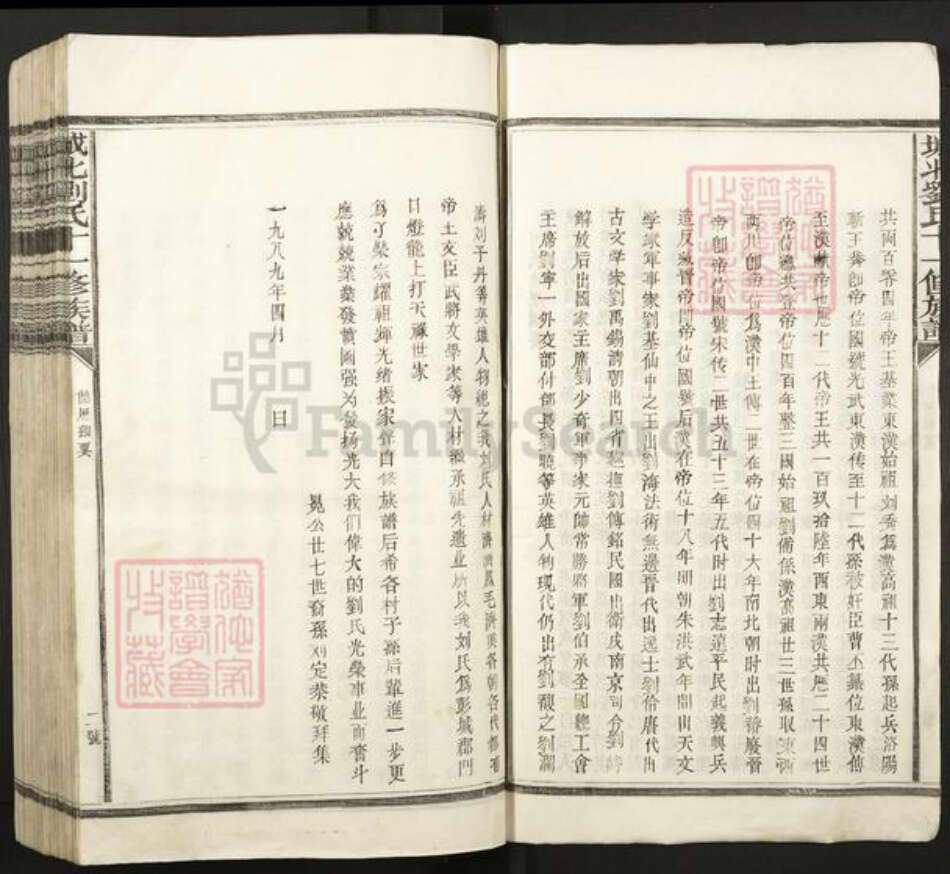 城北劉氏十一修族譜
共兩百零四年帝王基業東漢始祖刘秀爲漢高祖十三代孫起兵洛陽
新王莽卽帝位國號光武東漢传至十二代孫被奸臣曹丕篡位東漢傳
至漢獻帝也歷十二代帝王共一百玖拾陸年西東兩漢共歷二十四世
帝位總共登帝位四百年整三國始祖劉備係漢高祖廿三世孫取東西
兩川卽帝位爲漢中王傳二世在帝位四十六年南北朝时出劉裕廢晉
帝卽帝位國號宋传二世共五十三年五代时出劉志遠平民起義興兵
造反滅晉帝開帝位國號后漢在帝位十八年明朝朱洪武年間出天文
學家軍事家劉基仙中之王出劉海法術無邊晋代出逸士劉伶唐代出
古文学家劉禹錫清朝出四省廵撫劉傳銘民國出衛戍南京司令劉峙
解放后出國家主席劉少奇軍事家元帥常勝將軍劉伯承全國總工會
主席劉寧一外交部付部長劉曉等英雄人物现代仍出有劉馥之劉瀾
濤刘子丹等英雄人物總之我刘氏人材濟濟鳳毛濟美各朝各代都有
帝王文臣武將文學家等人材繼承祖先遺业所以我刘氏爲彭城郡門
曰燈龍上打天祿世家
爲了榮宗耀祖輝光绪振家聲自修族譜后希各村子孫后輩進一步更
應兢兢業業發憤圖强为發扬光大我們偉大的劉氏光榮事业而奮斗
晃公廿七世裔孫刘定恭敬拜集
一九八九年四月　日
城北劉氏十一修族譜
二號
FamilySearch